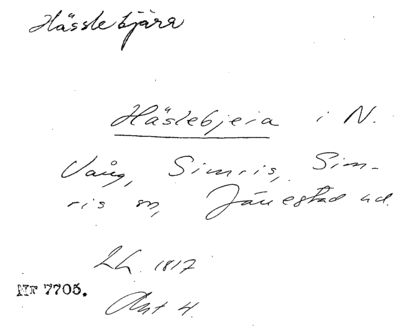 Hässlebjära
Häslebjeia i N.
Vång, Simris, Sim-
ris sn, Järrestad hd.
LH. 1817
NF 7705.
Akt 4.